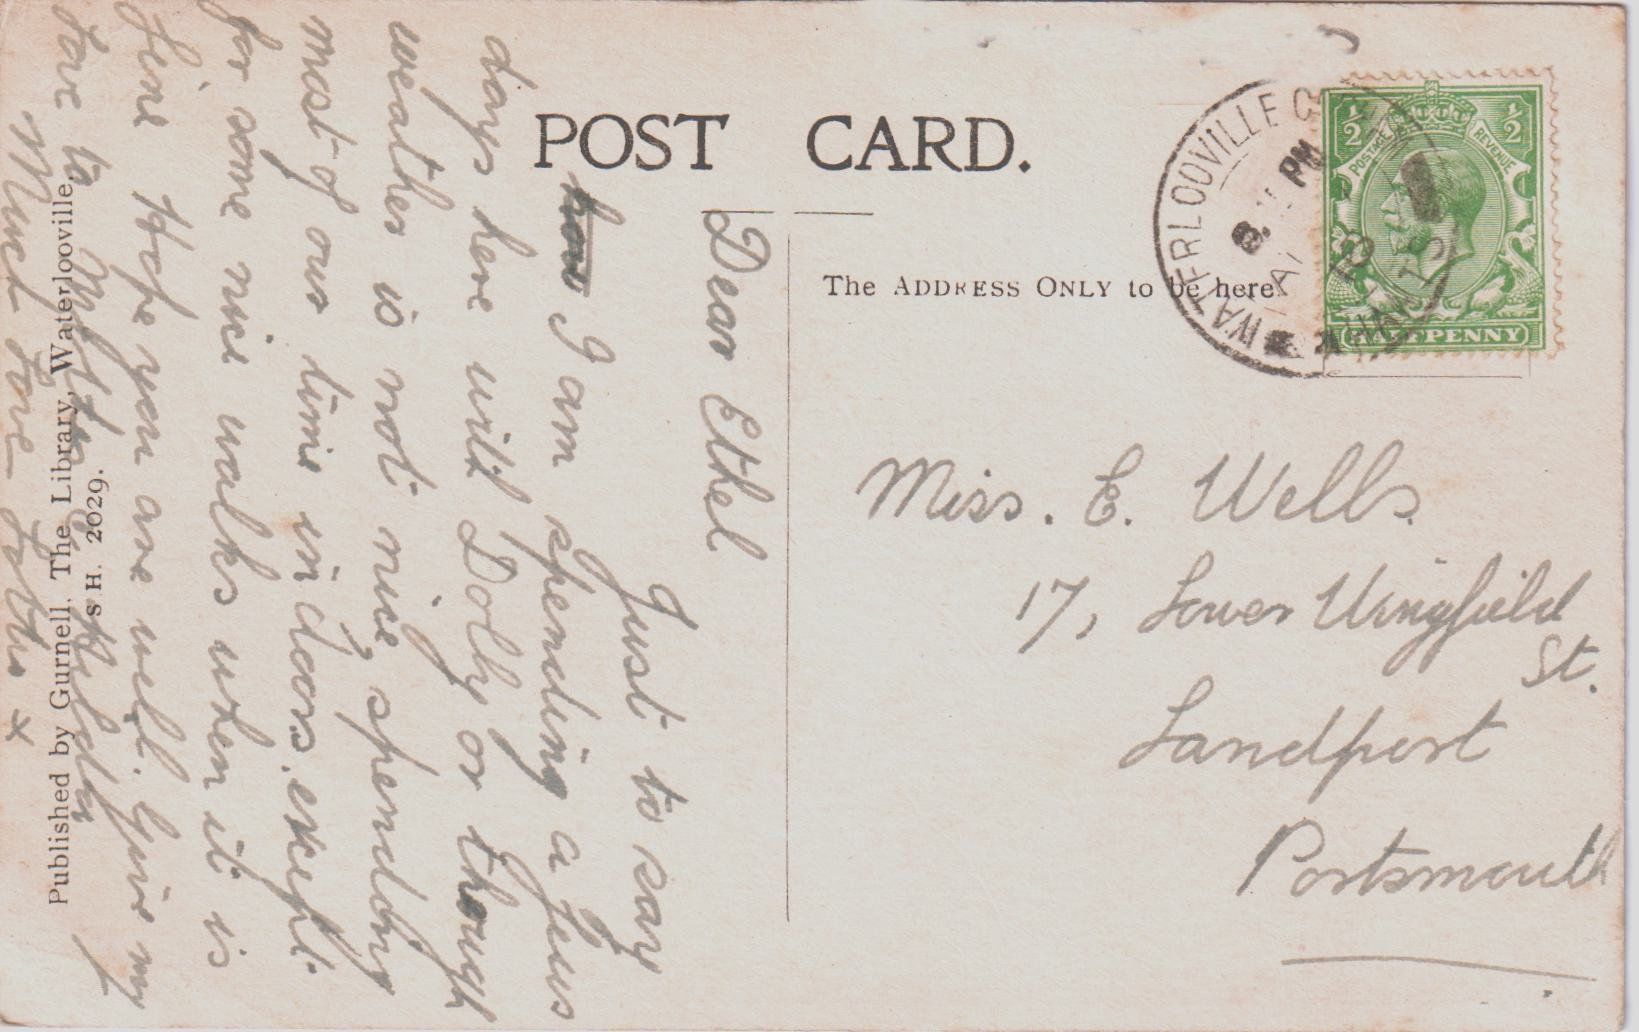 POST CARD.
The ADDRESS ONLY to be here.
WATERLOOVILLE
PM
HANTS
1/2 1/2
POSTAGE REVENUE
HALFPENNY
Miss. E. Wells
17, Lower Wingfield
St.
Landport
Portsmouth
Dear Ethel
Just to say
how I am spending a few
days here with Dolly or though
weather is not nice, spending
most of our time in doors, except
for some nice walks when it is
fine Hope you are well. Give my
love to Mother & Hilda
Much Love
x
Published by Gurnell, The Library, Waterlooville.
S.H. 2029.